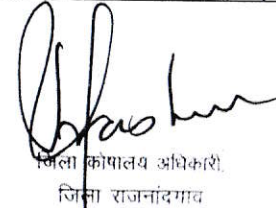 जिला कोषालय अधिकारी,
जिला राजनांदगांव